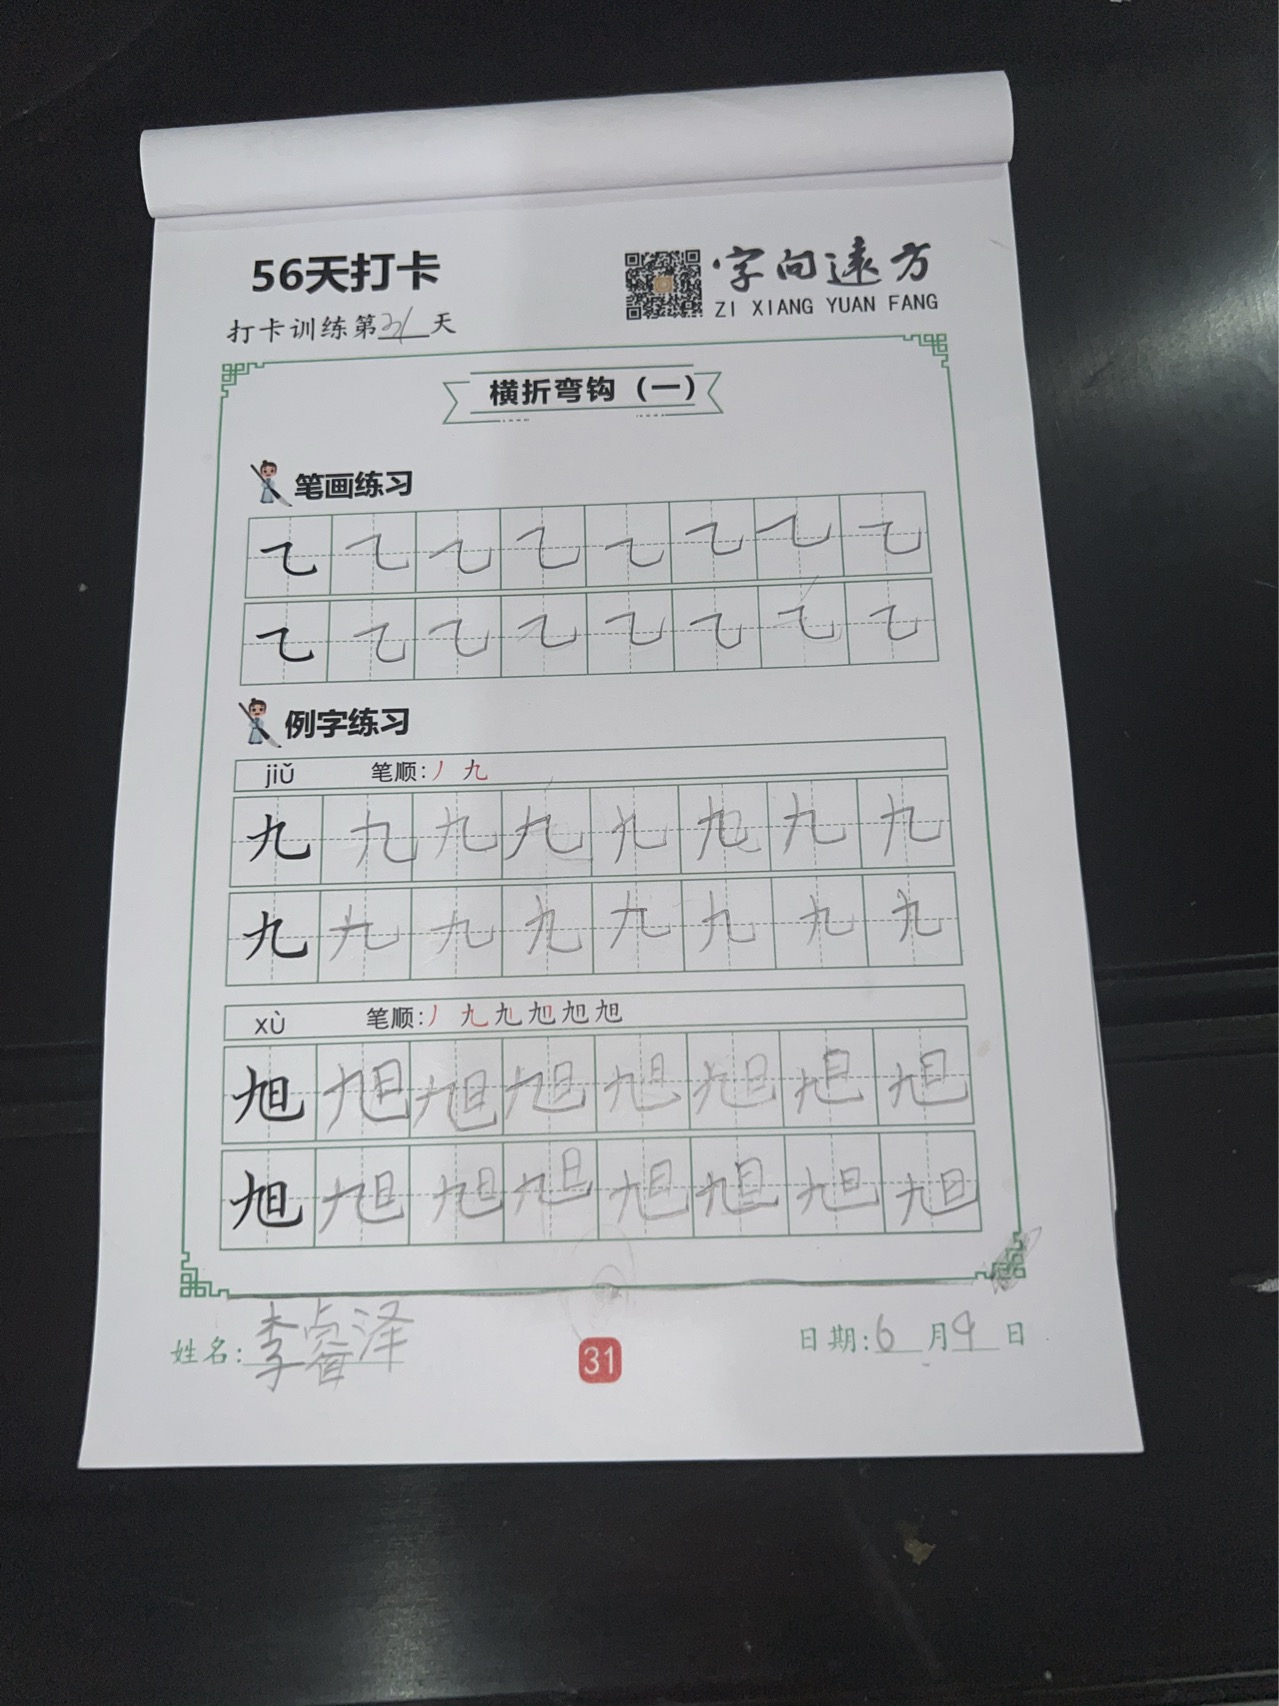 56天打卡
字向远方
ZI XIANG YUAN FANG
打卡训练第31天
横折弯钩（一）
笔画练习
㇈㇈㇈㇈㇈㇈㇈㇈
㇈㇈㇈㇈㇈㇈㇈㇈
例字练习
jiǔ 笔顺:丿 九
九九九九九九九九
九九九九九九九九
xù 笔顺:丿 九 旭 旭 旭 旭
旭旭旭旭旭旭旭旭
旭旭旭旭旭旭旭旭
姓名:李睿泽
31
日期:6月9日